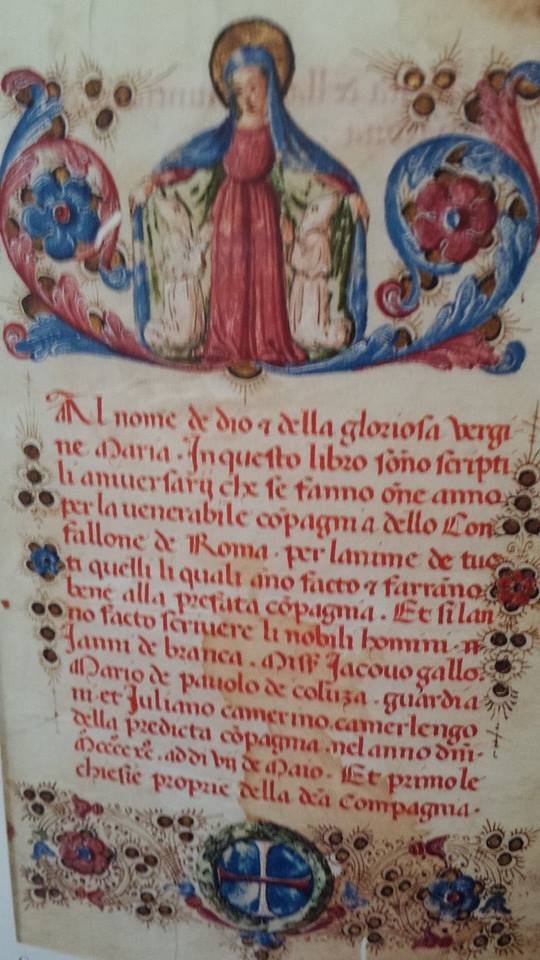 Al nome de dio ⁊ della gloriosa vergi
ne Maria. In questo libro sõno scripti
li aniversarij che se fanno oñe anno
per la venerabile cõpagnia dello Con
fallone de Roma. per lanime de tuc
ti quelli li quali ãno facto ⁊ farrãno
bene alla prefata cõpagnia. Et si lan
no facto scrivere li nobili homini.
Janni de branca. Jacovo gallo.
Mario de pavolo de coluza. guardia
ni et Juliano camerino. camerlengo
della predicta cõpagnia. nel anno dñi.
Mcccc xc. adi vij de Maio. Et primo le
chiesie proprie della dcã Compagnia.